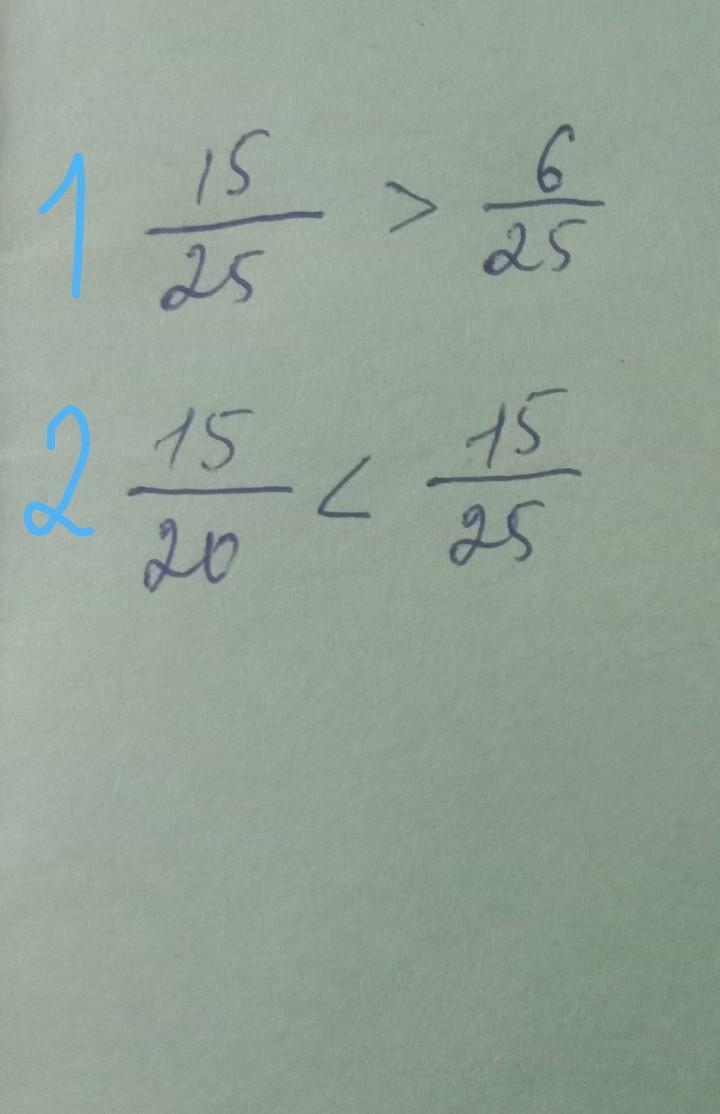 1 15/25 > 6/25
2 15/20 < 15/25